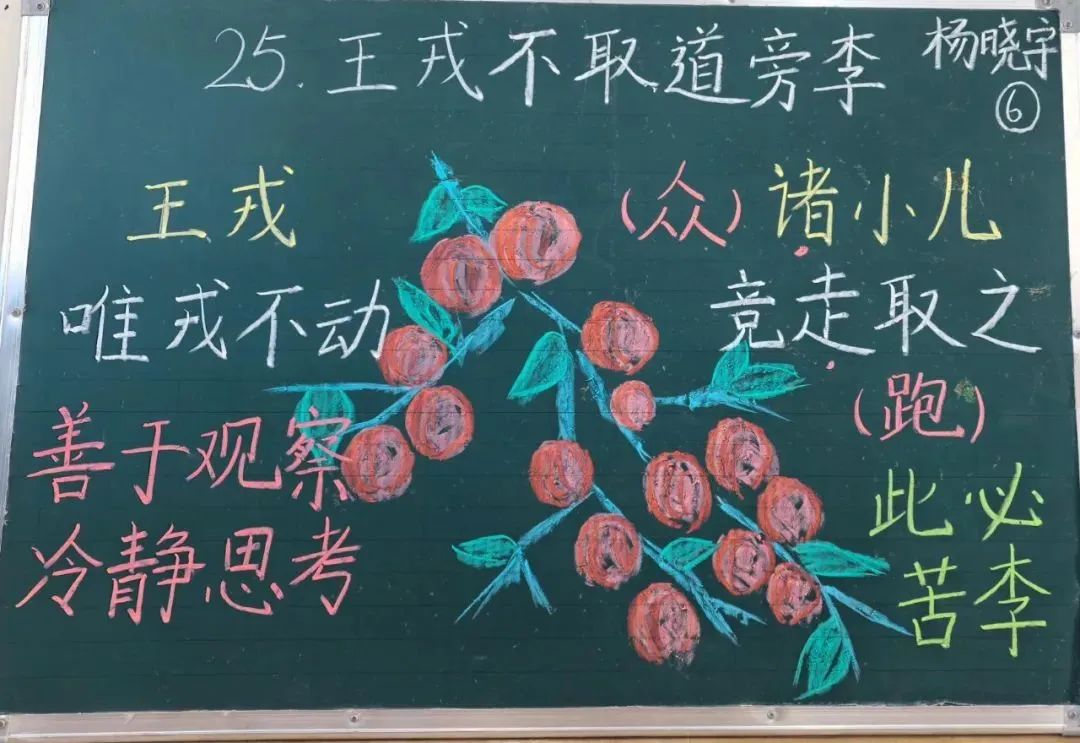 25.王戎不取道旁李
杨晓宇
⑥
王戎
(众)诸小儿
唯戎不动
竞走取之
(跑)
善于观察
冷静思考
此必
苦李